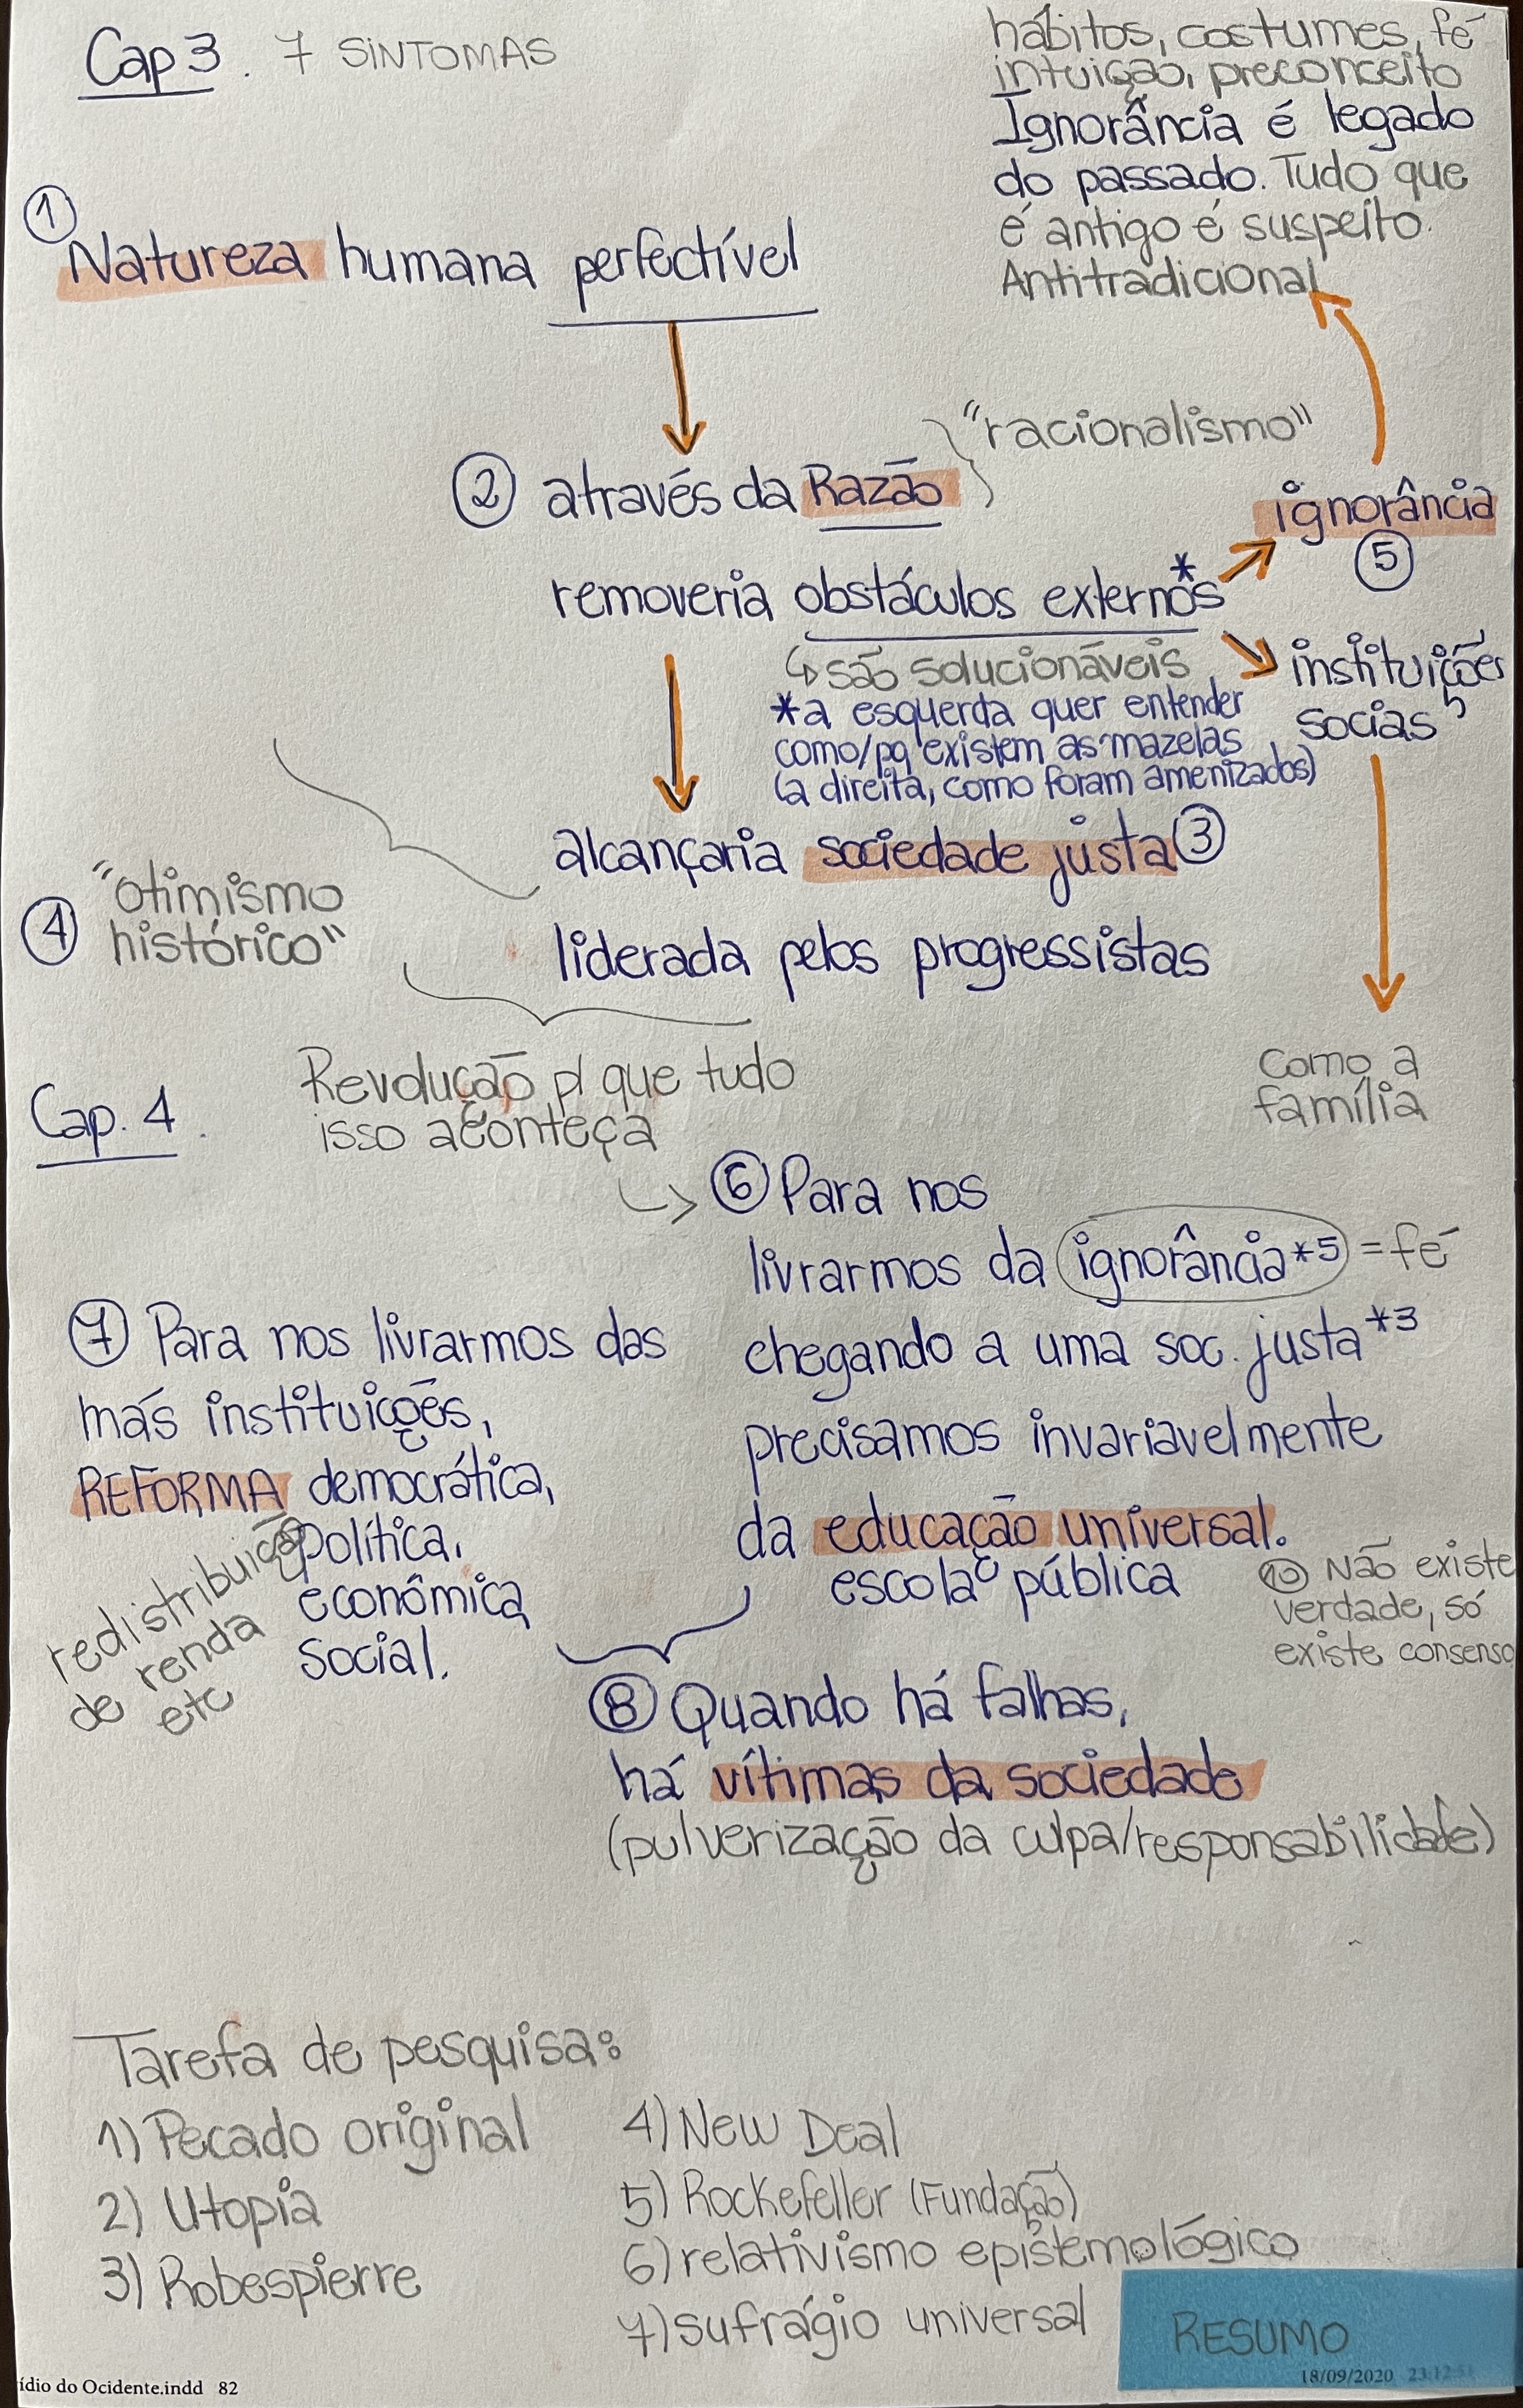 Cap 3. 7 SINTOMAS
hábitos, costumes, fé
intuição, preconceito
Ignorância é legado
do passado. Tudo que
é antigo é suspeito.
Antitradicional
① Natureza humana perfectível
"racionalismo"
② através da Razão
removeria obstáculos externos*
ignorância
⑤
↳ são solucionáveis
*a esquerda quer entender
como/pq existem as mazelas
(a direita, como foram amenizados)
instituições
socias
alcançaria sociedade justa ③
liderada pelos progressistas
④ "otimismo
histórico"
Revolução p/ que tudo
isso aconteça
como a
família
Cap. 4.
⑥ Para nos
livrarmos da ignorância*5 = fé
chegando a uma soc. justa*3
precisamos invariavelmente
da educação universal.
escola pública
⑦ Para nos livrarmos das
más instituições,
REFORMA democrática,
política,
econômica,
social.
redistribuição
de renda
etc
⑩ Não existe
verdade, só
existe consenso
⑧ Quando há falhas,
há vítimas da sociedade
(pulverização da culpa/responsabilidade)
Tarefa de pesquisa:
1) Pecado original
2) Utopia
3) Robespierre
4) New Deal
5) Rockefeller (Fundação)
6) relativismo epistemológico
7) sufrágio universal
RESUMO
ídio do Ocidente.indd 82
18/09/2020 23:12:51